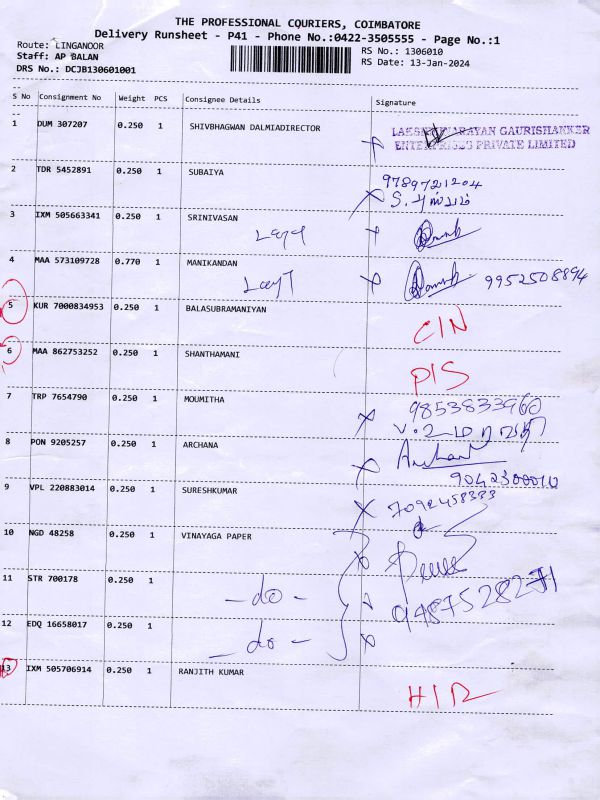 THE PROFESSIONAL COURIERS, COIMBATORE
Delivery Runsheet - P41 - Phone No.:0422-3505555 - Page No.:1
Route: LINGANOOR
RS No.: 1306010
Staff: AP BALAN
RS Date: 13-Jan-2024
DRS No.: DCJB130601001
S No Consignment No Weight PCS Consignee Details Signature
1 DUM 307207 0.250 1 SHIVBHAGWAN DALMIADIRECTOR
GAURISHANKER
ENTERPRISES PRIVATE LIMITED
2 TDR 5452891 0.250 1 SUBAIYA
9789721204
3 IXM 505663341 0.250 1 SRINIVASAN
4 MAA 573109728 0.770 1 MANIKANDAN
9952508894
5 KUR 7000834953 0.250 1 BALASUBRAMANIYAN
CIN
6 MAA 862753252 0.250 1 SHANTHAMANI
PIS
7 TRP 7654790 0.250 1 MOUMITHA
9853833960
8 PON 9205257 0.250 1 ARCHANA
Archana
9042300010
9 VPL 220883014 0.250 1 SURESHKUMAR
7092458333
10 NGD 48258 0.250 1 VINAYAGA PAPER
11 STR 700178 0.250 1 -do-
9487528271
12 EDQ 16658017 0.250 1 -do-
13 IXM 505706914 0.250 1 RANJITH KUMAR